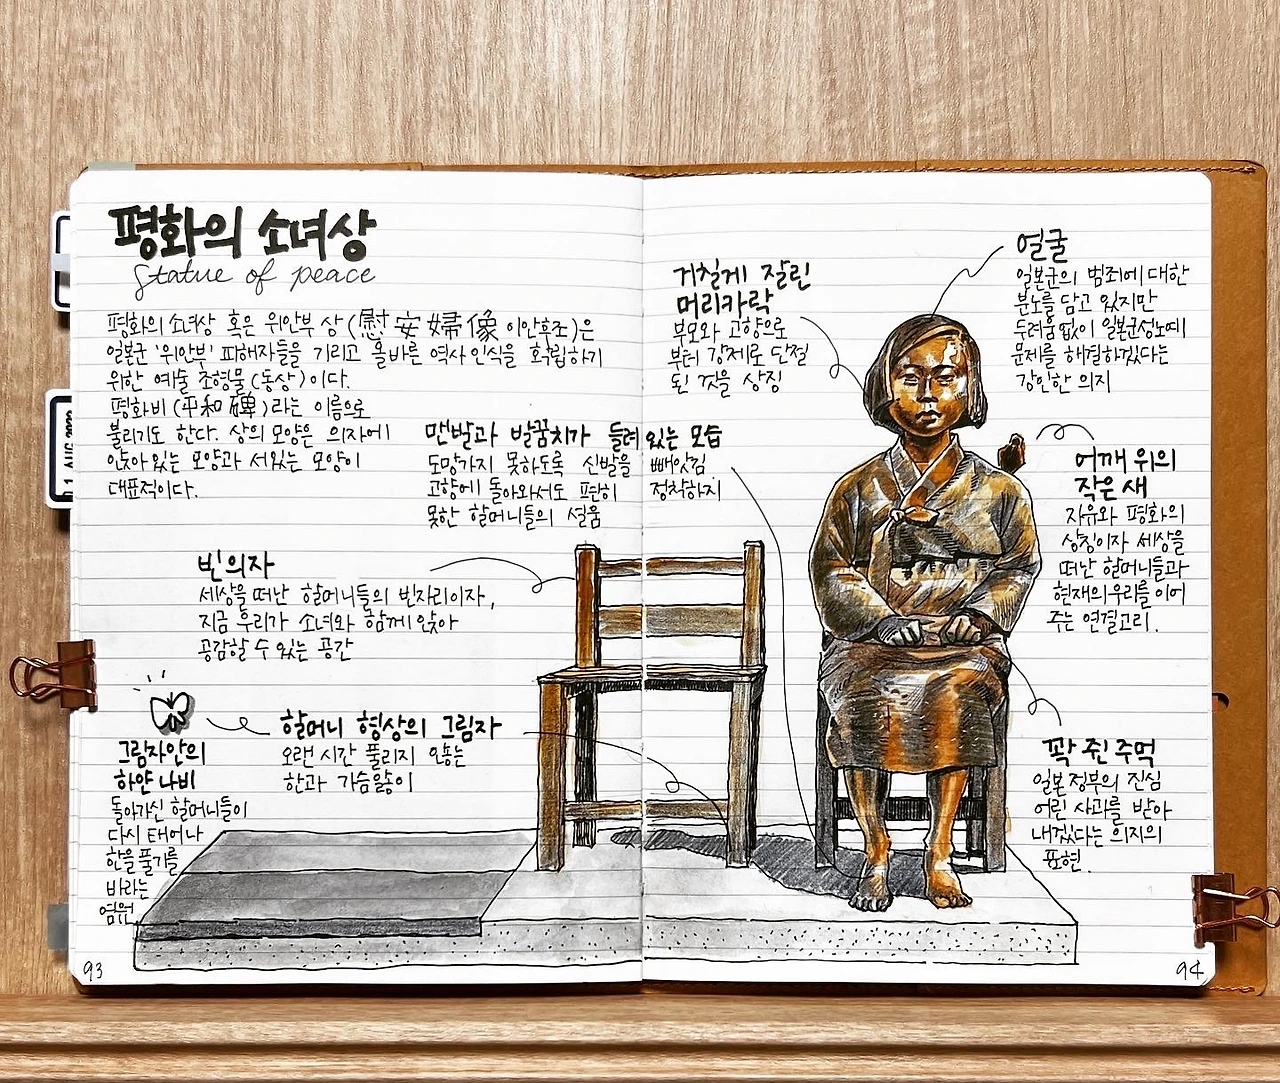 평화의 소녀상
Statue of peace
평화의 소녀상 혹은 위안부 상(慰安婦像 이안후조)은
일본군 '위안부' 피해자들을 기리고 올바른 역사 인식을 확립하기
위한 예술 조형물(동상)이다.
평화비(平和碑)라는 이름으로
불리기도 한다. 상의 모양은 의자에
앉아 있는 모양과 서있는 모양이
대표적이다.
맨발과 발꿈치가 들려 있는 모습
도망가지 못하도록 신발을 빼앗김
고향에 돌아와서도 편히 정착하지
못한 할머니들의 설움
빈 의자
세상을 떠난 할머니들의 빈자리이자,
지금 우리가 소녀와 함께 앉아
공감할 수 있는 공간
할머니 형상의 그림자
오랜 시간 풀리지 않는
한과 가슴앓이
그림자안의
하얀 나비
돌아가신 할머니들이
다시 태어나
한을 풀기를
바라는
염원
93
거칠게 잘린
머리카락
부모와 고향으로
부터 강제로 단절
된 것을 상징
얼굴
일본군의 범죄에 대한
분노를 담고 있지만
두려움 없이 일본군성노예
문제를 해결하겠다는
강인한 의지
어깨 위의
작은 새
자유와 평화의
상징이자 세상을
떠난 할머니들과
현재의 우리를 이어
주는 연결고리.
꽉 쥔 주먹
일본 정부의 진심
어린 사과를 받아
내겠다는 의지의
표현.
94